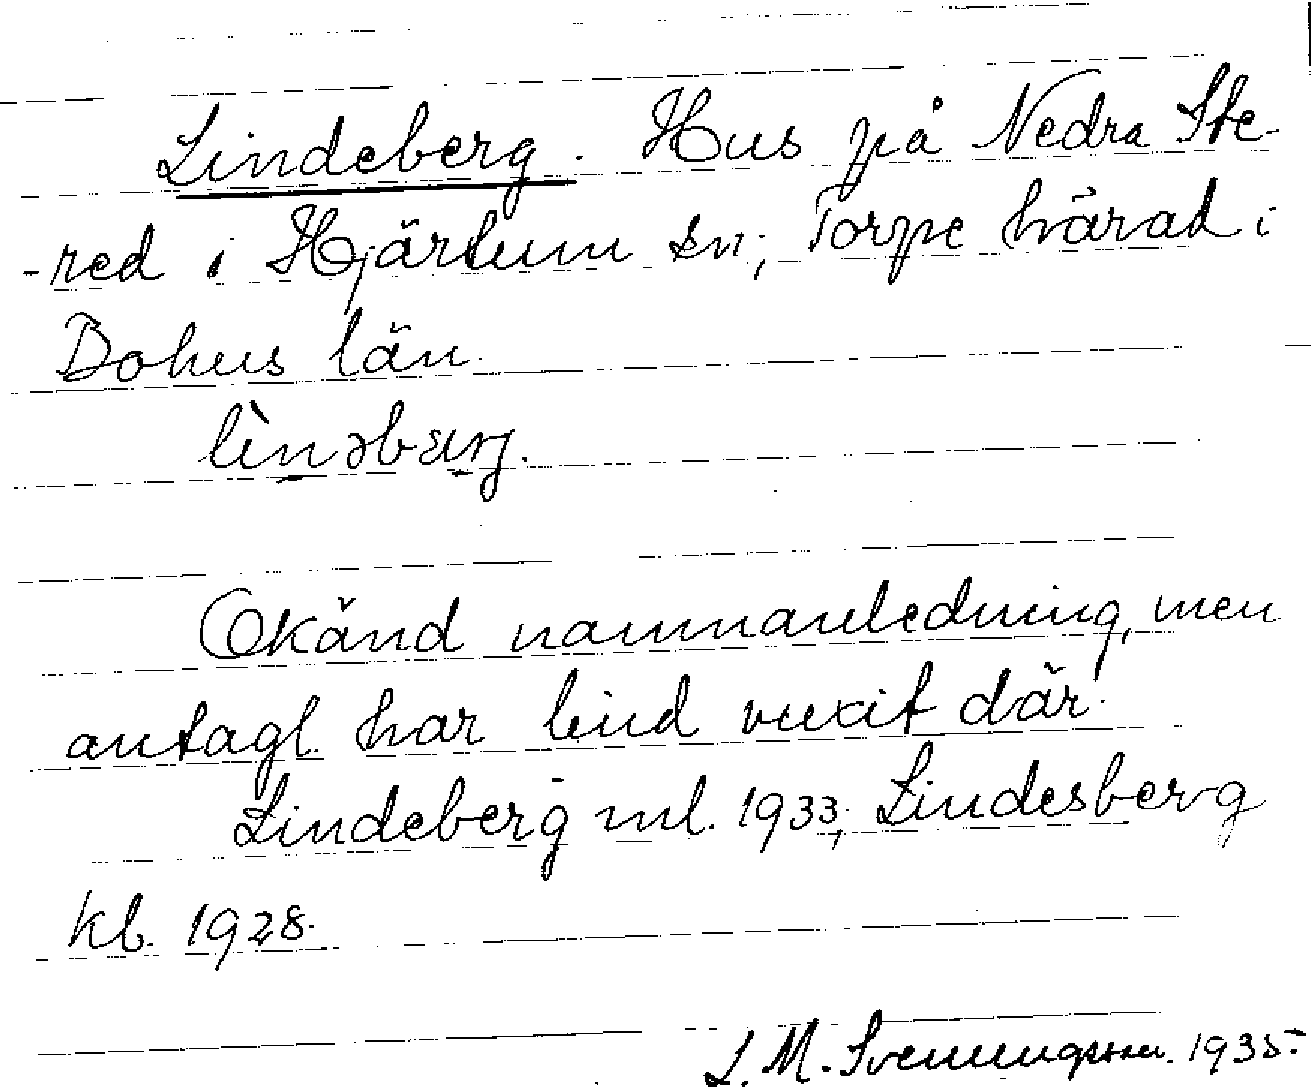 Lindeberg. Hus på Nedra Ste-
-red i Hjärtum sn; Torpe härad i
Bohus län.
lìnəbærj.
Okänd namnanledning, men
antagl. har lind vuxit där.
Lindeberg ml. 1933; Lindesberg
kb. 1928.
L. M. Svenungsson. 1935.